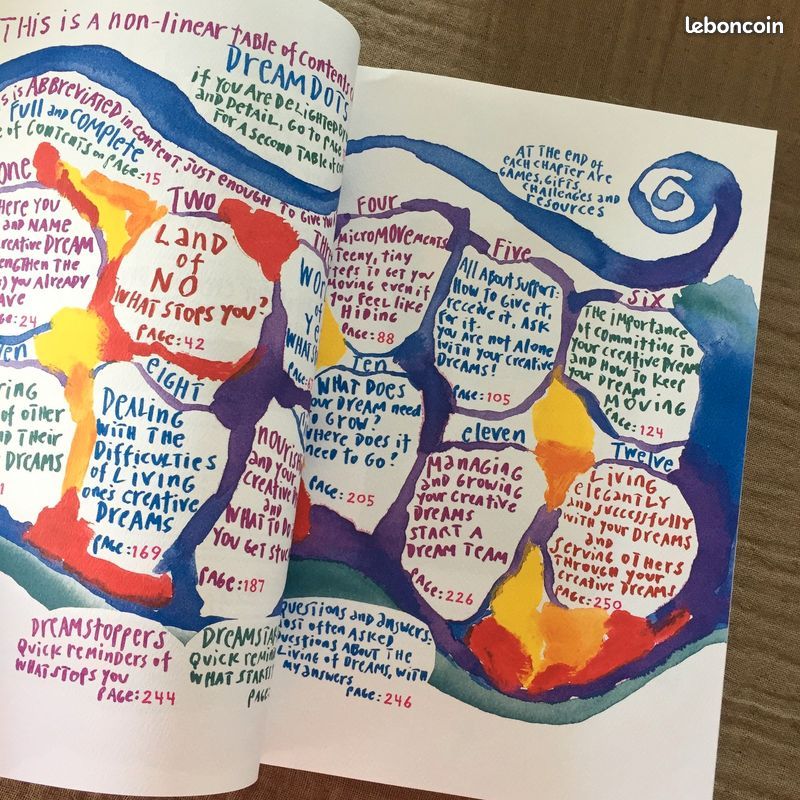 leboncoin
THIS IS A NON-LINEAR TABLE OF CONTENTS
DREAMDOTS
IF YOU ARE DELIGHTED BY
AND DETAIL, GO TO PAGE
FOR A SECOND TABLE OF
IS ABBREVIATED IN CONTENT, JUST ENOUGH TO GIVE YOU
FULL AND COMPLETE
OF CONTENTS ON PAGE:15
AT THE END OF
EACH CHAPTER ARE
GAMES, GIFTS,
CHALLENGES AND
RESOURCES
ONE
HERE YOU
AND NAME
CREATIVE DREAM
THE
YOU ALREADY
GE:24
TWO
LAND
OF
NO
WHAT STOPS YOU?
PAGE:42
FOUR
MICROMOVEMENTS
TEENY, TINY
STEPS TO GET YOU
MOVING EVEN IF
YOU FEEL LIKE
HIDING
PAGE:88
FIVE
ALL ABOUT SUPPORT:
HOW TO GIVE IT,
RECEIVE IT, ASK
FOR IT.
YOU ARE NOT ALONE
WITH YOUR CREATIVE
DREAMS!
PAGE:105
SIX
THE IMPORTANCE
OF COMMITTING TO
YOUR CREATIVE DREAM
AND HOW TO KEEP
YOUR DREAM
MOVING
PAGE:124
OF OTHER
THEIR
DREAMS
EIGHT
DEALING
WITH THE
DIFFICULTIES
OF LIVING
ONES CREATIVE
DREAMS
PAGE:169
AND YOUR
CREATIVE
AND
WHAT TO DO
YOU GET
PAGE:187
TEN
WHAT DOES
YOUR DREAM NEED
TO GROW?
WHERE DOES IT
NEED TO GO?
PAGE:205
ELEVEN
MANAGING
AND GROWING
YOUR CREATIVE
DREAMS
START A
DREAM TEAM
PAGE:226
TWELVE
LIVING
ELEGANTLY
AND SUCCESSFULLY
WITH YOUR DREAMS
AND
SERVING OTHERS
THROUGH YOUR
CREATIVE DREAMS
PAGE:250
DREAMSTOPPERS
QUICK REMINDERS OF
WHAT STOPS YOU
PAGE:244
QUICK
WHAT
QUESTIONS AND ANSWERS:
MOST OFTEN ASKED
QUESTIONS ABOUT THE
LIVING OF DREAMS, WITH
MY ANSWERS
PAGE:246